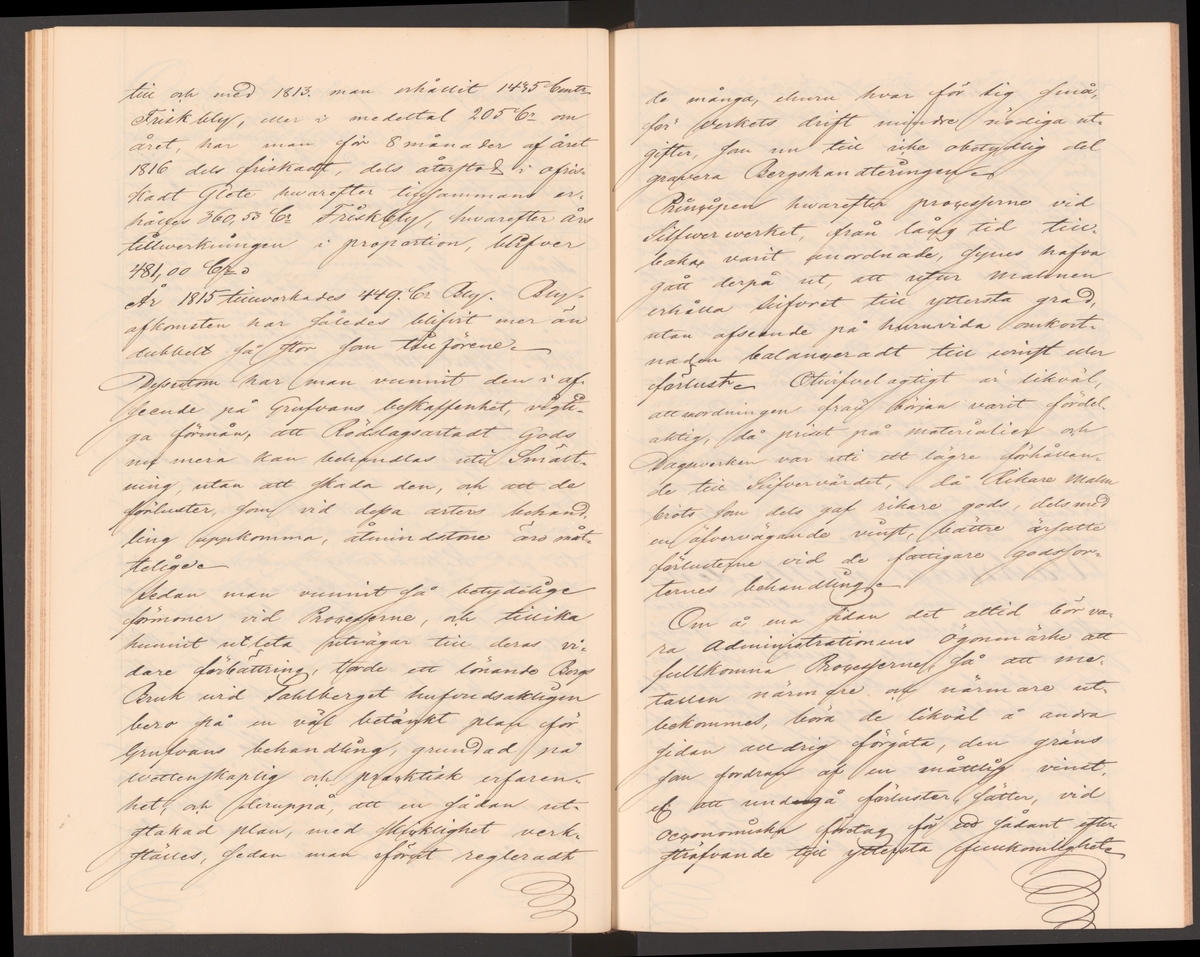 till och med 1813. man erhållit 1435 Centr
Friskbly, eller i medeltal 205 Cr om
året, har man för 8 månader af året
1816 dels friskadt, dels återstod i ofris-
kadt Glete hwarefter tillsammans er-
hålles 360,53 Cr Friskbly, hwarefter års
tillwerkningen i proportion, blifver
481,00 Cr
År 1815 tillverkades 449. Cr Bly. Bly-
afkomsten har således blifvit mer än
dubbelt så stor som tillförene.
Dessutom har man vunnit den i af-
seende på Grufvans beskaffenhet, vigti-
ga förmån, att Rödslagsartadt Gods
nu mera kan behandlas uti Smält-
ning, utan att skada den, och att de
förluster, som vid dessa arters behand-
ling uppkomma, åtminstone äro måt-
telige.
Sedan man vunnit så betydelige
förmoner vid Processerne, och tillika
hunnit utleta utvägar till deras vi-
dare förbättring, torde ett lönande Bergs
Bruk vid Sahlberget hufvudsakligen
bero på en väl betänkt plan för
Grufvans behandling, grundad på
wettenskaplig och praktisk erfaren-
het, och deruppå, att en sådan ut-
stakad plan, med skicklighet verk-
ställes, sedan man först regleradt
de många, ehuru hvar för sig små,
för Verkets drift mindre nödiga ut-
gifter, som nu till icke obetydlig del
gravera Bergshandteringen.
Principen hwarefter processerne vid
Silfwerwerket, från lång tid till-
baka varit anordnade, synes hafva
gått derpå ut, att utur Malmen
erhålla Silfvret till yttersta grad,
utan afseende på huruvida omkost-
naden balangeradt till vinst eller
förlust. Otvifvelagtigt är likväl,
att anordningen från början varit fördel-
aktig, då priset på materialier och
Dagsverken var uti ett lägre förhållan-
de till Silfvervärdet, då Rikare Malm
bröts som dels gaf rikare gods, dels med
en öfvervägande vinst, bättre ärsatte
förlusterne vid de fattigare godssor-
ternes behandling.
Om å ena sidan det altid bör va-
ra Administrationens Ögonmärke att
fullkomna Processerne, så att me-
tallen närmre och närmare ut-
bekommes, böra de likväl å andra
sidan aldrig förgäta, den gräns
som fordran af en måttlig vinst,
att undgå förluster, sätter, vid
Oeconomiska företag för sådant efter-
sträfvande till yttersta fullkomlighet